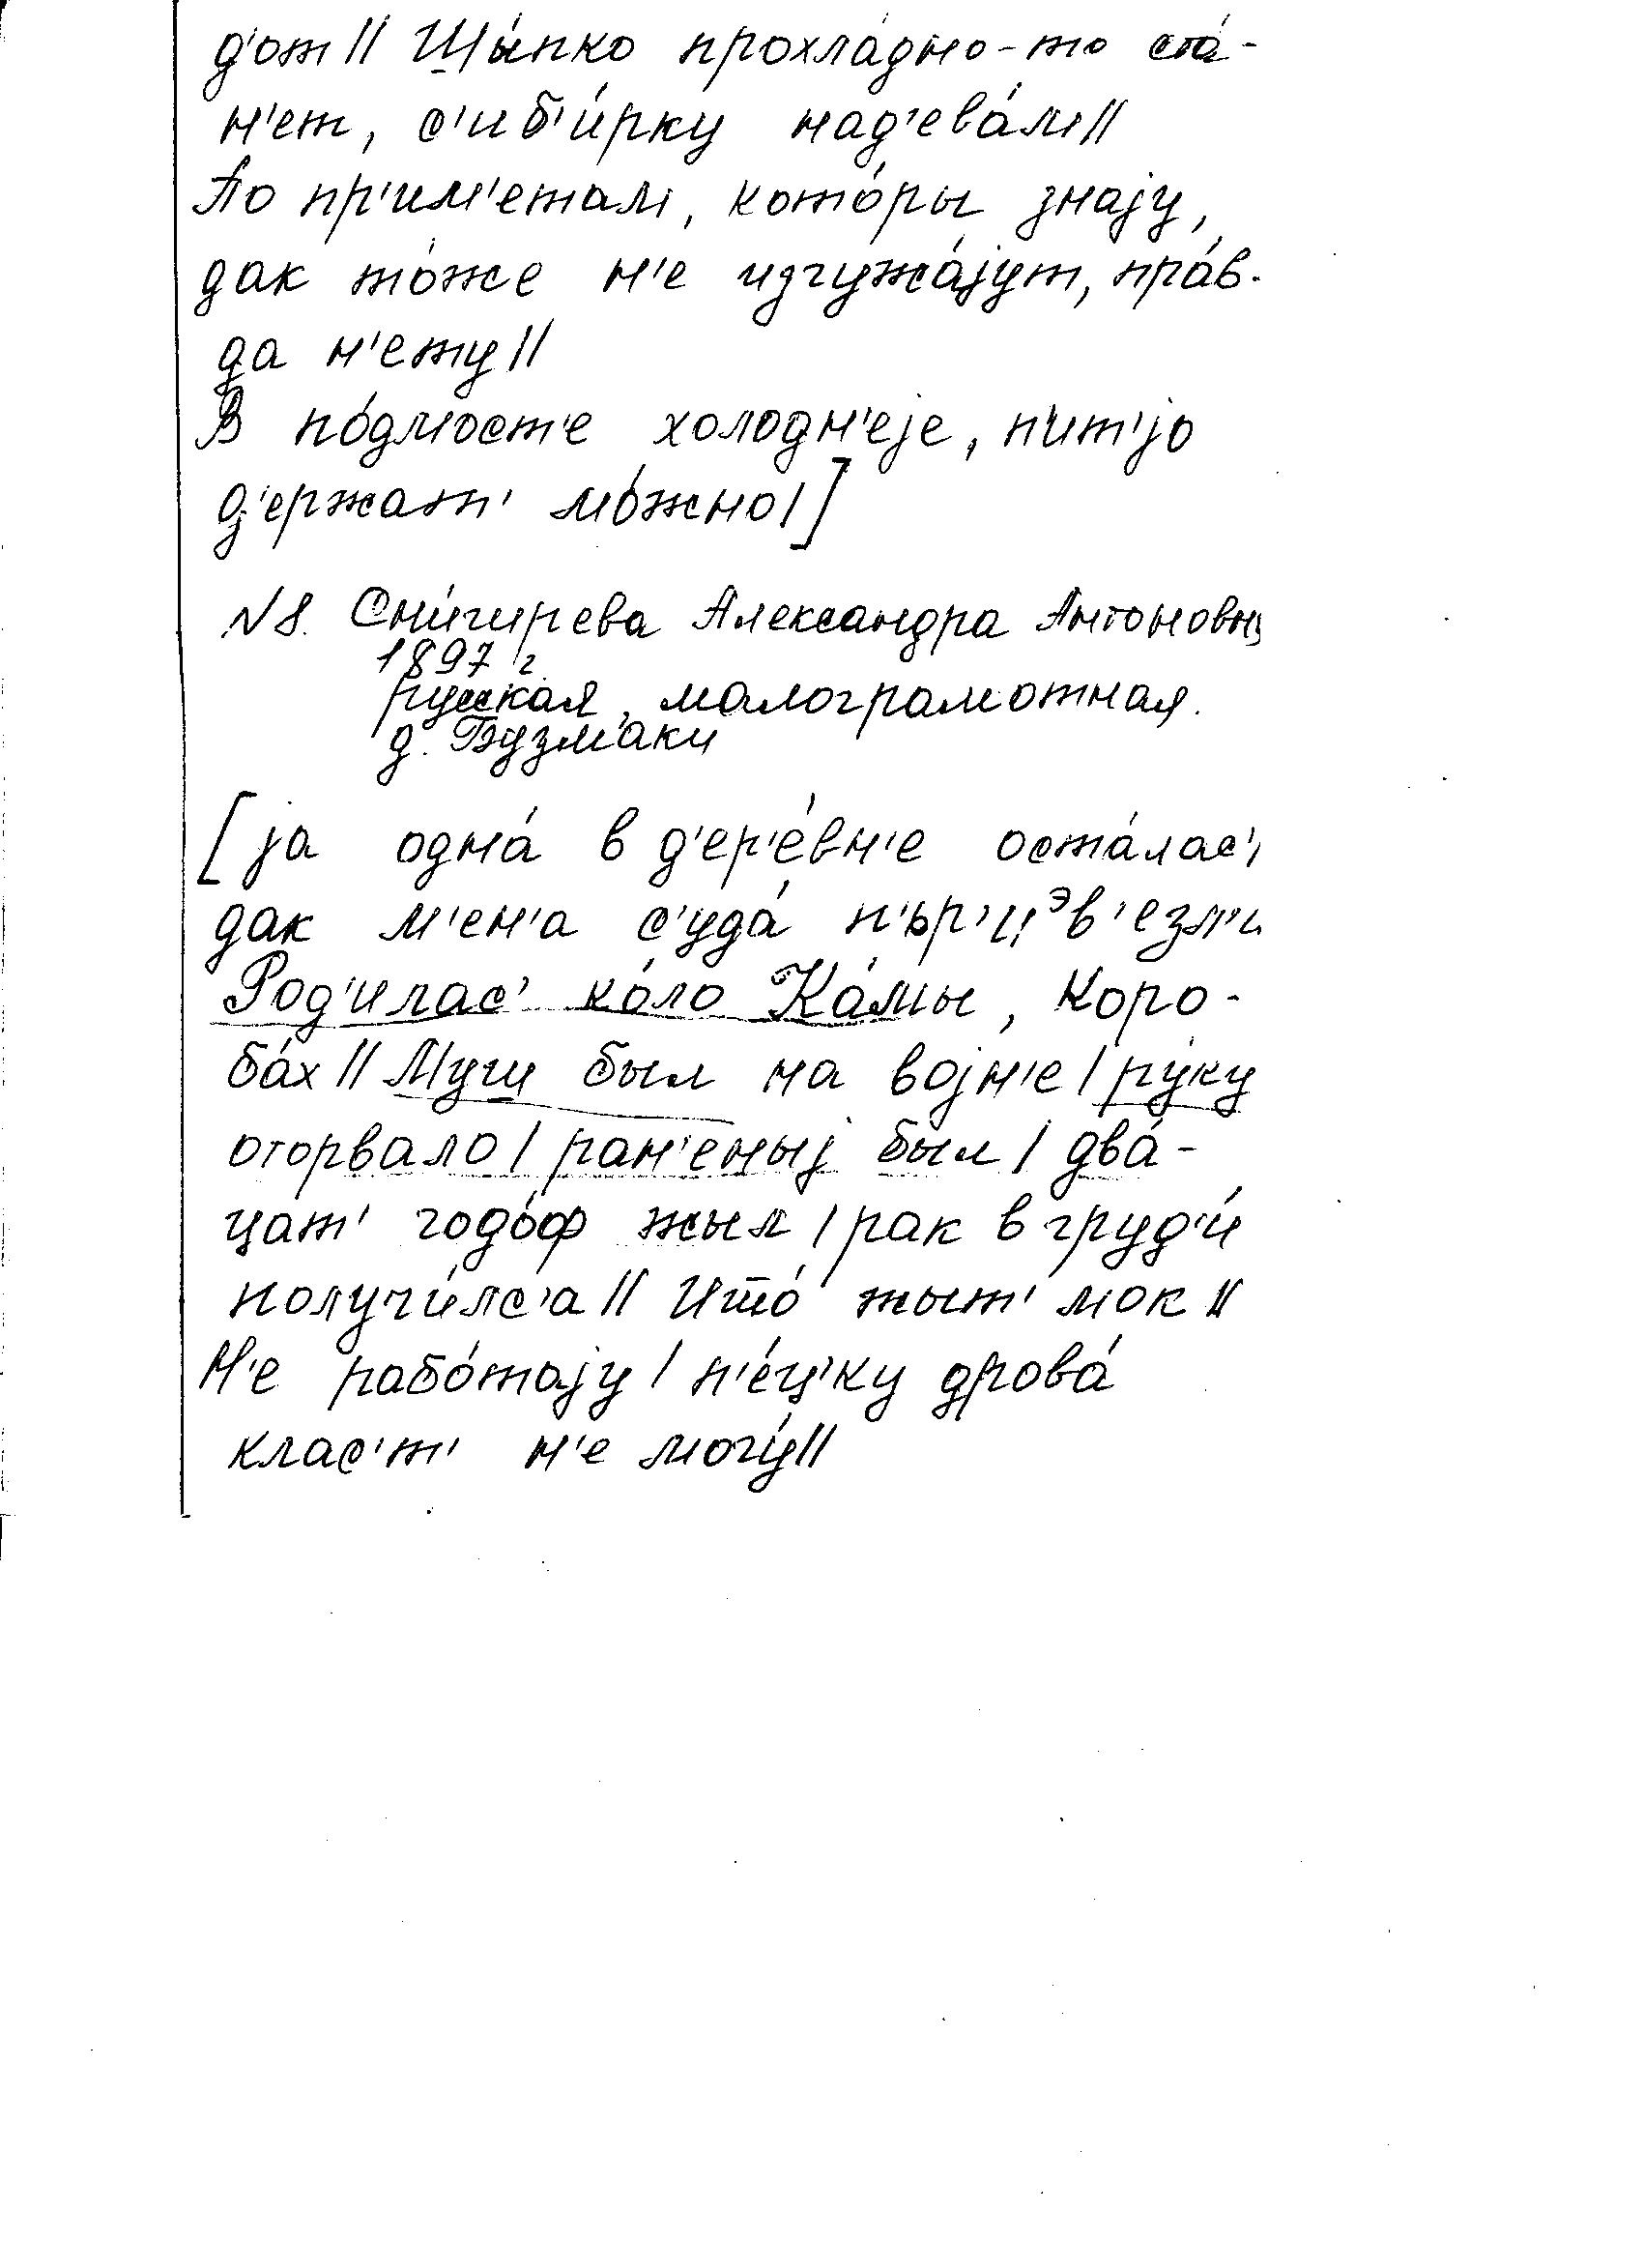 д'от|| Шы́пко прохла́дно-то ста́-
н'ет, с'иб'и́рку над'ева́л'и||
По пр'им'етам, кото́ры знају,
дак то́же н'е изгужа́јут, пра́в-
да н'ету||
В по́дмост'е холодн'еје, пит'јо
д'ержат' мо́жно|]
№8. Снигирева Александра Антоновна
1897 г.
русская, малограмотная.
д. Бузмаки
[ја одна́ в д'ер'е́вн'е оста́лас'|
дак м'ен'а с'уда́ п'ьр'иэв'езл'и
Род'илас' ко́ло Ка́мы, Коро-
ба́х|| Муш был на војн'е| ру́ку
оторвало| ран'еныј был| два́-
цат' годо́ф жыл| рак в груд'и́
получи́лс'а|| И то́ жыт' мок||
Н'е рабо́тају| п'е́ц'ку дрова́
клас'т' н'е могу́||